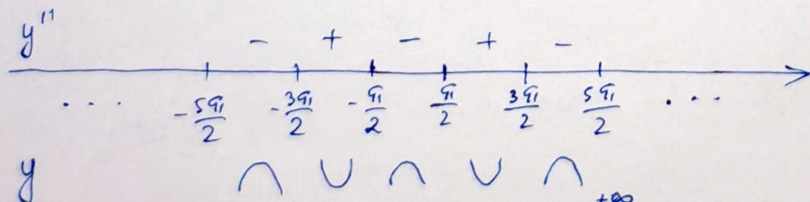 y''
- + - + -
... -5π/2 -3π/2 -π/2 π/2 3π/2 5π/2 ...
y ∩ ∪ ∩ ∪ ∩
+∞